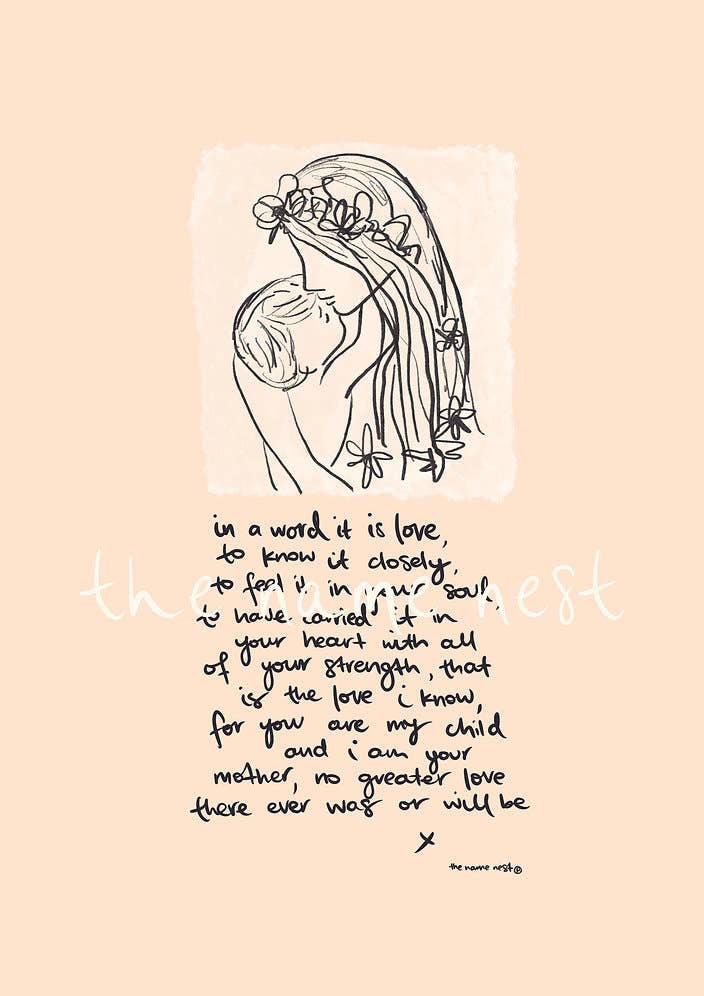 in a word it is love,
to know it closely,
to feel it in your soul,
to have carried it in
your heart with all
of your strength, that
is the love i know,
for you are my child
and i am your
mother, no greater love
there ever was or will be
x
the name nest
the name nest®